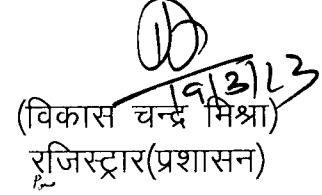 19/3/23
(विकास चन्द्र मिश्रा)
रजिस्ट्रार(प्रशासन)